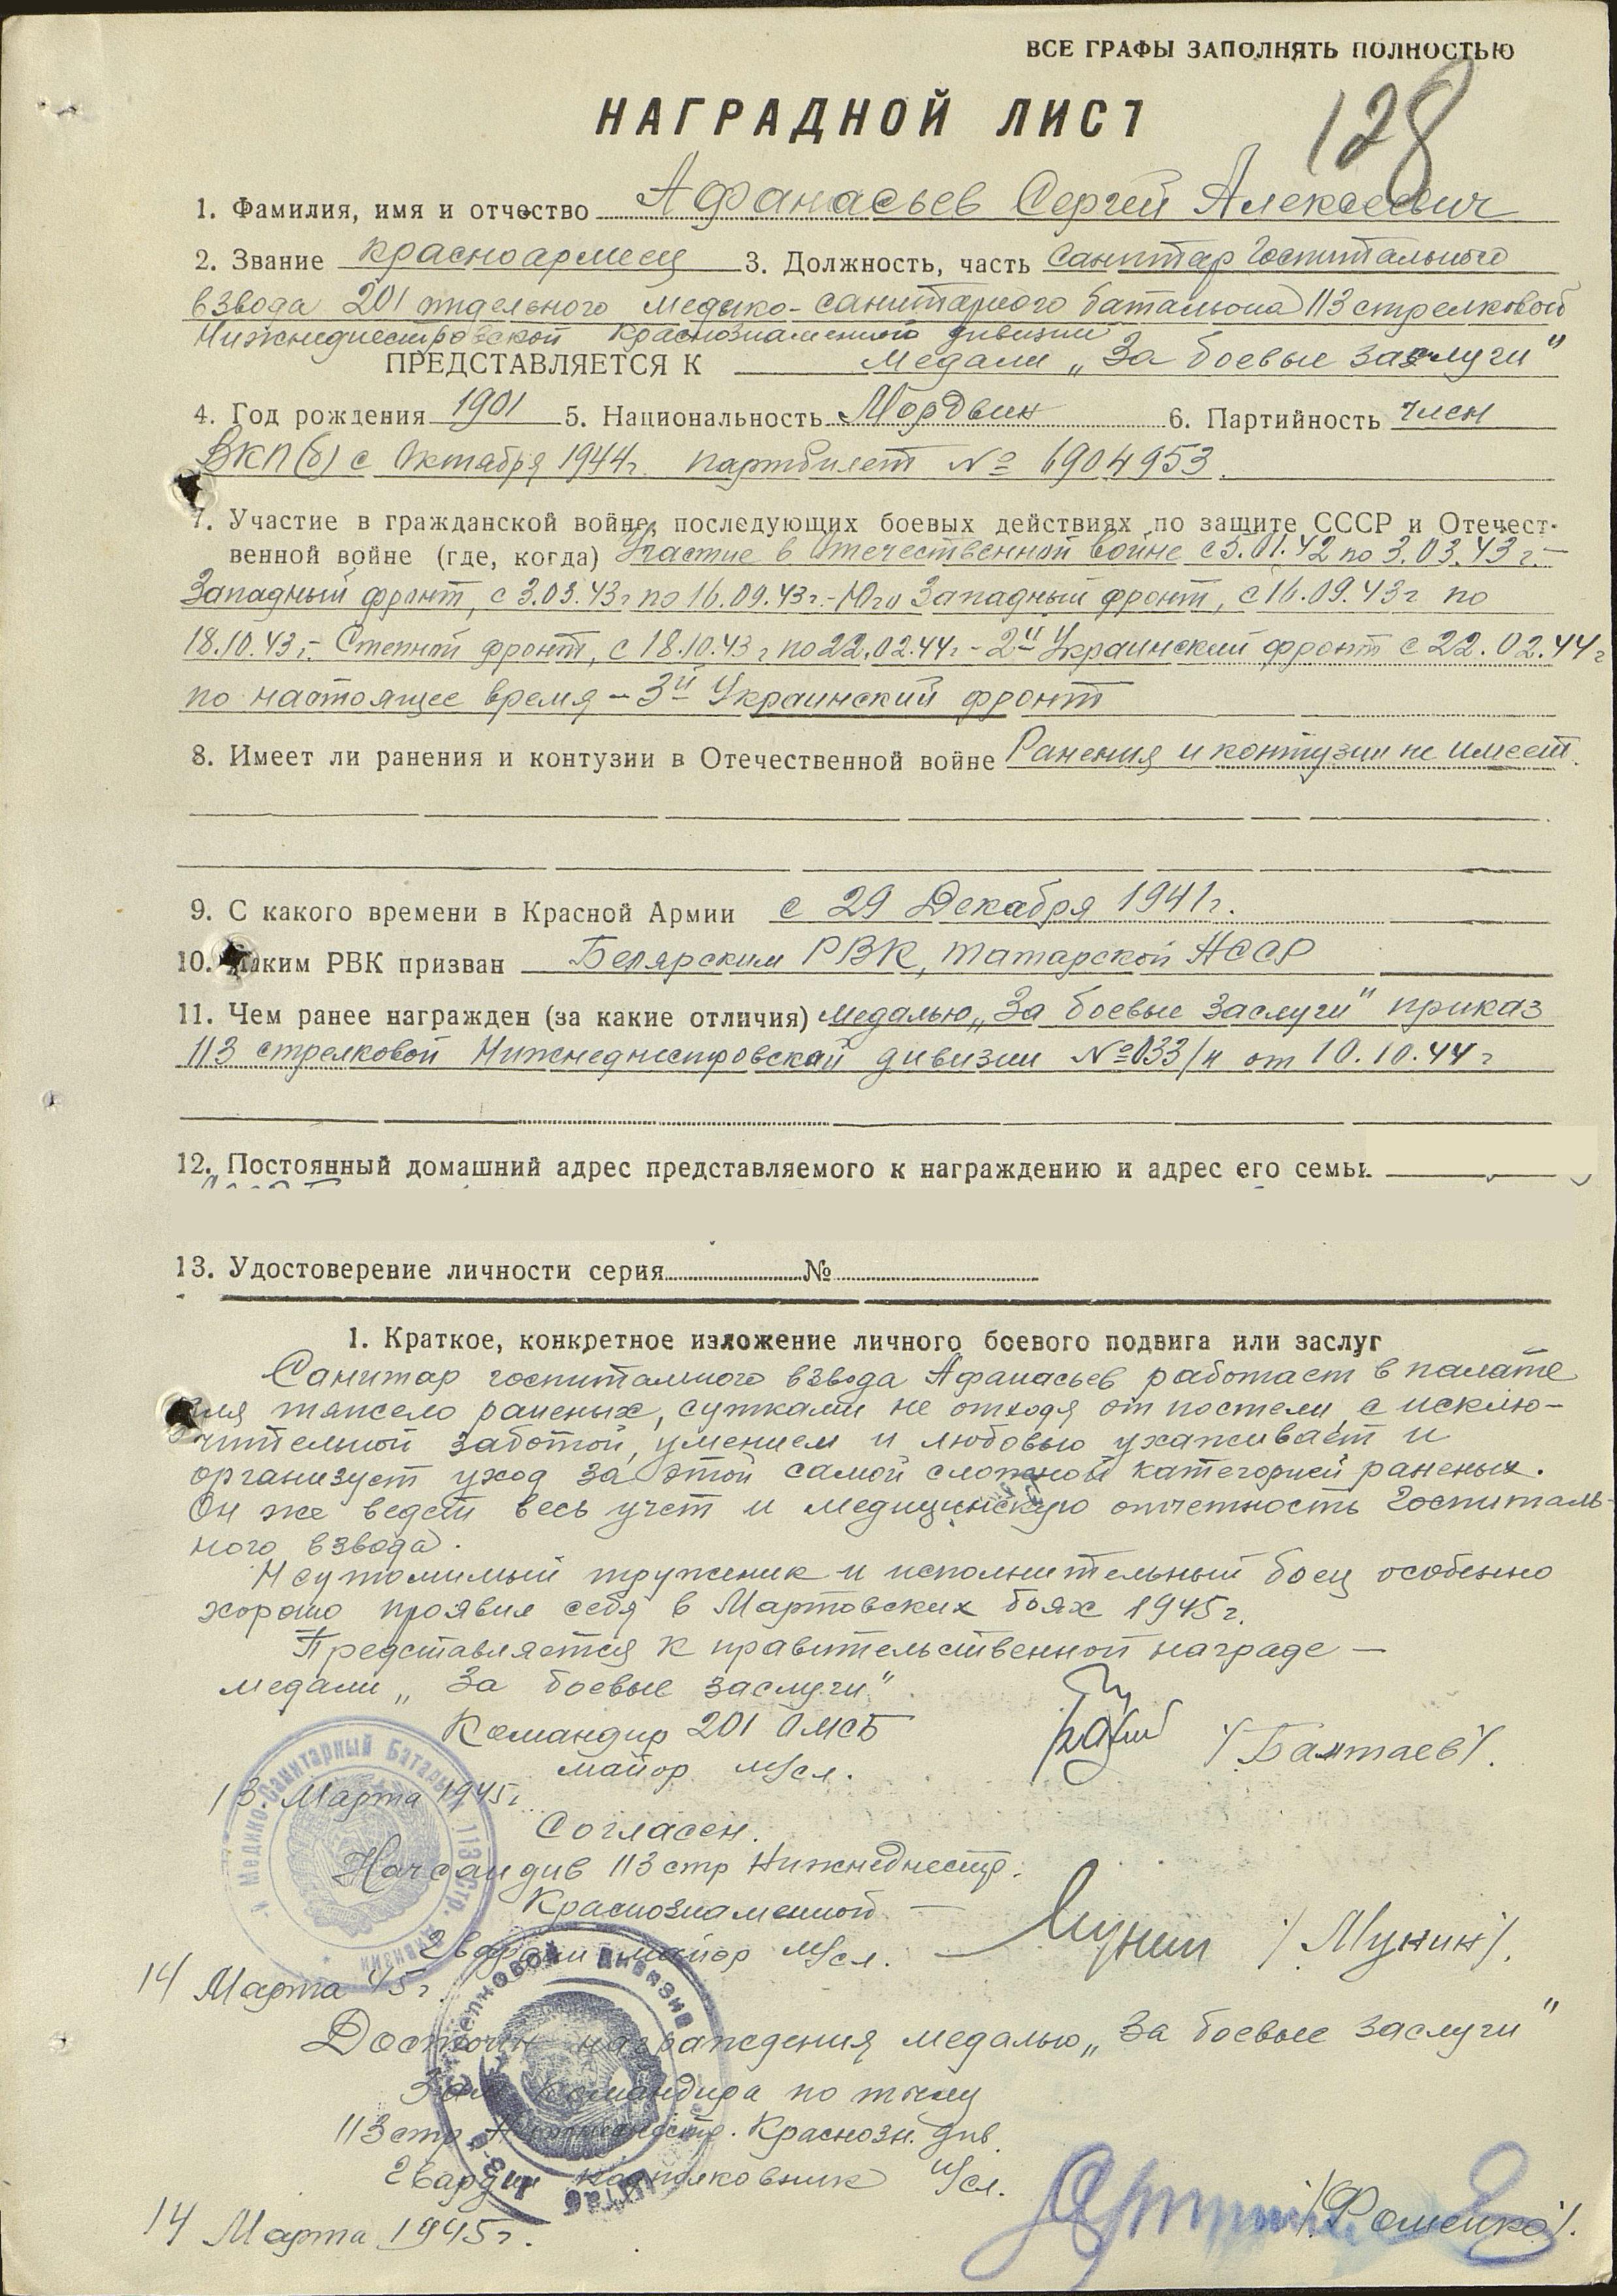 ВСЕ ГРАФЫ ЗАПОЛНЯТЬ ПОЛНОСТЬЮ
128
НАГРАДНОЙ ЛИСТ
1. Фамилия, имя и отчество Афанасьев Сергей Алексеевич
2. Звание красноармеец 3. Должность, часть Санитар Госпитального
взвода 201 отдельного медико-санитарного батальона 113 стрелковой
Нижнеднестровской Краснознаменной дивизии
ПРЕДСТАВЛЯЕТСЯ К медали „За боевые заслуги"
4. Год рождения 1901 5. Национальность Мордвин 6. Партийность член
ВКП(б) с Октября 1944г. партбилет № 6904953.
7. Участие в гражданской войне, последующих боевых действиях по защите СССР и Отечест-
венной войне (где, когда) Участие в Отечественной войне с 5.01.42 по 3.03.43 г. —
Западный фронт, с 3.03.43г по 16.09.43г.-Юго Западный фронт, с 16.09.43г по
18.10.43г.- Степной фронт, с 18.10.43г по 22.02.44г.- 2й Украинский фронт с 22.02.44г
по настоящее время – 3й Украинский фронт
8. Имеет ли ранения и контузии в Отечественной войне Ранения и контузии не имеет.
9. С какого времени в Красной Армии с 29 Декабря 1941г.
10. Каким РВК призван Белярским РВК, Татарской АССР
11. Чем ранее награжден (за какие отличия) медалью „За боевые заслуги" приказ
113 стрелковой Нижнеднестровской дивизии №033/н от 10.10.44г
12. Постоянный домашний адрес представляемого к награждению и адрес его семьи
13. Удостоверение личности серия №
1. Краткое, конкретное изложение личного боевого подвига или заслуг
Санитар госпитального взвода Афанасьев работает в палате
для тяжело раненых, сутками не отходя от постели, с исклю-
чительной заботой, умением и любовью ухаживает и
организует уход за этой самой сложной категорией раненых.
Он же ведет весь учет и медицинскую отчетность Госпиталь-
ного взвода.
Неутомимый труженик и исполнительный боец особенно
хорошо проявил себя в Мартовских боях 1945г.
Представляется к правительственной награде —
медали „За боевые заслуги"
Командир 201 ОМСБ
майор м/сл. /Бахтаев/.
13. Марта 1945г.
Согласен.
Начсандив 113 стр Нижнеднестр.
Краснознаменной —
Гвардии майор м/сл. — Мунин /Мунин/.
14 Марта 45г.
Достоин награждения медалью „За боевые заслуги"
Зам командира по тылу
113 стр Нижнеднестр. Краснозн. див.
Гвардии подполковник и/сл.
14 Марта 1945г.
Медико-Санитарный Батальон 113 стр. дивизии
стрелковой дивизия
Штаб